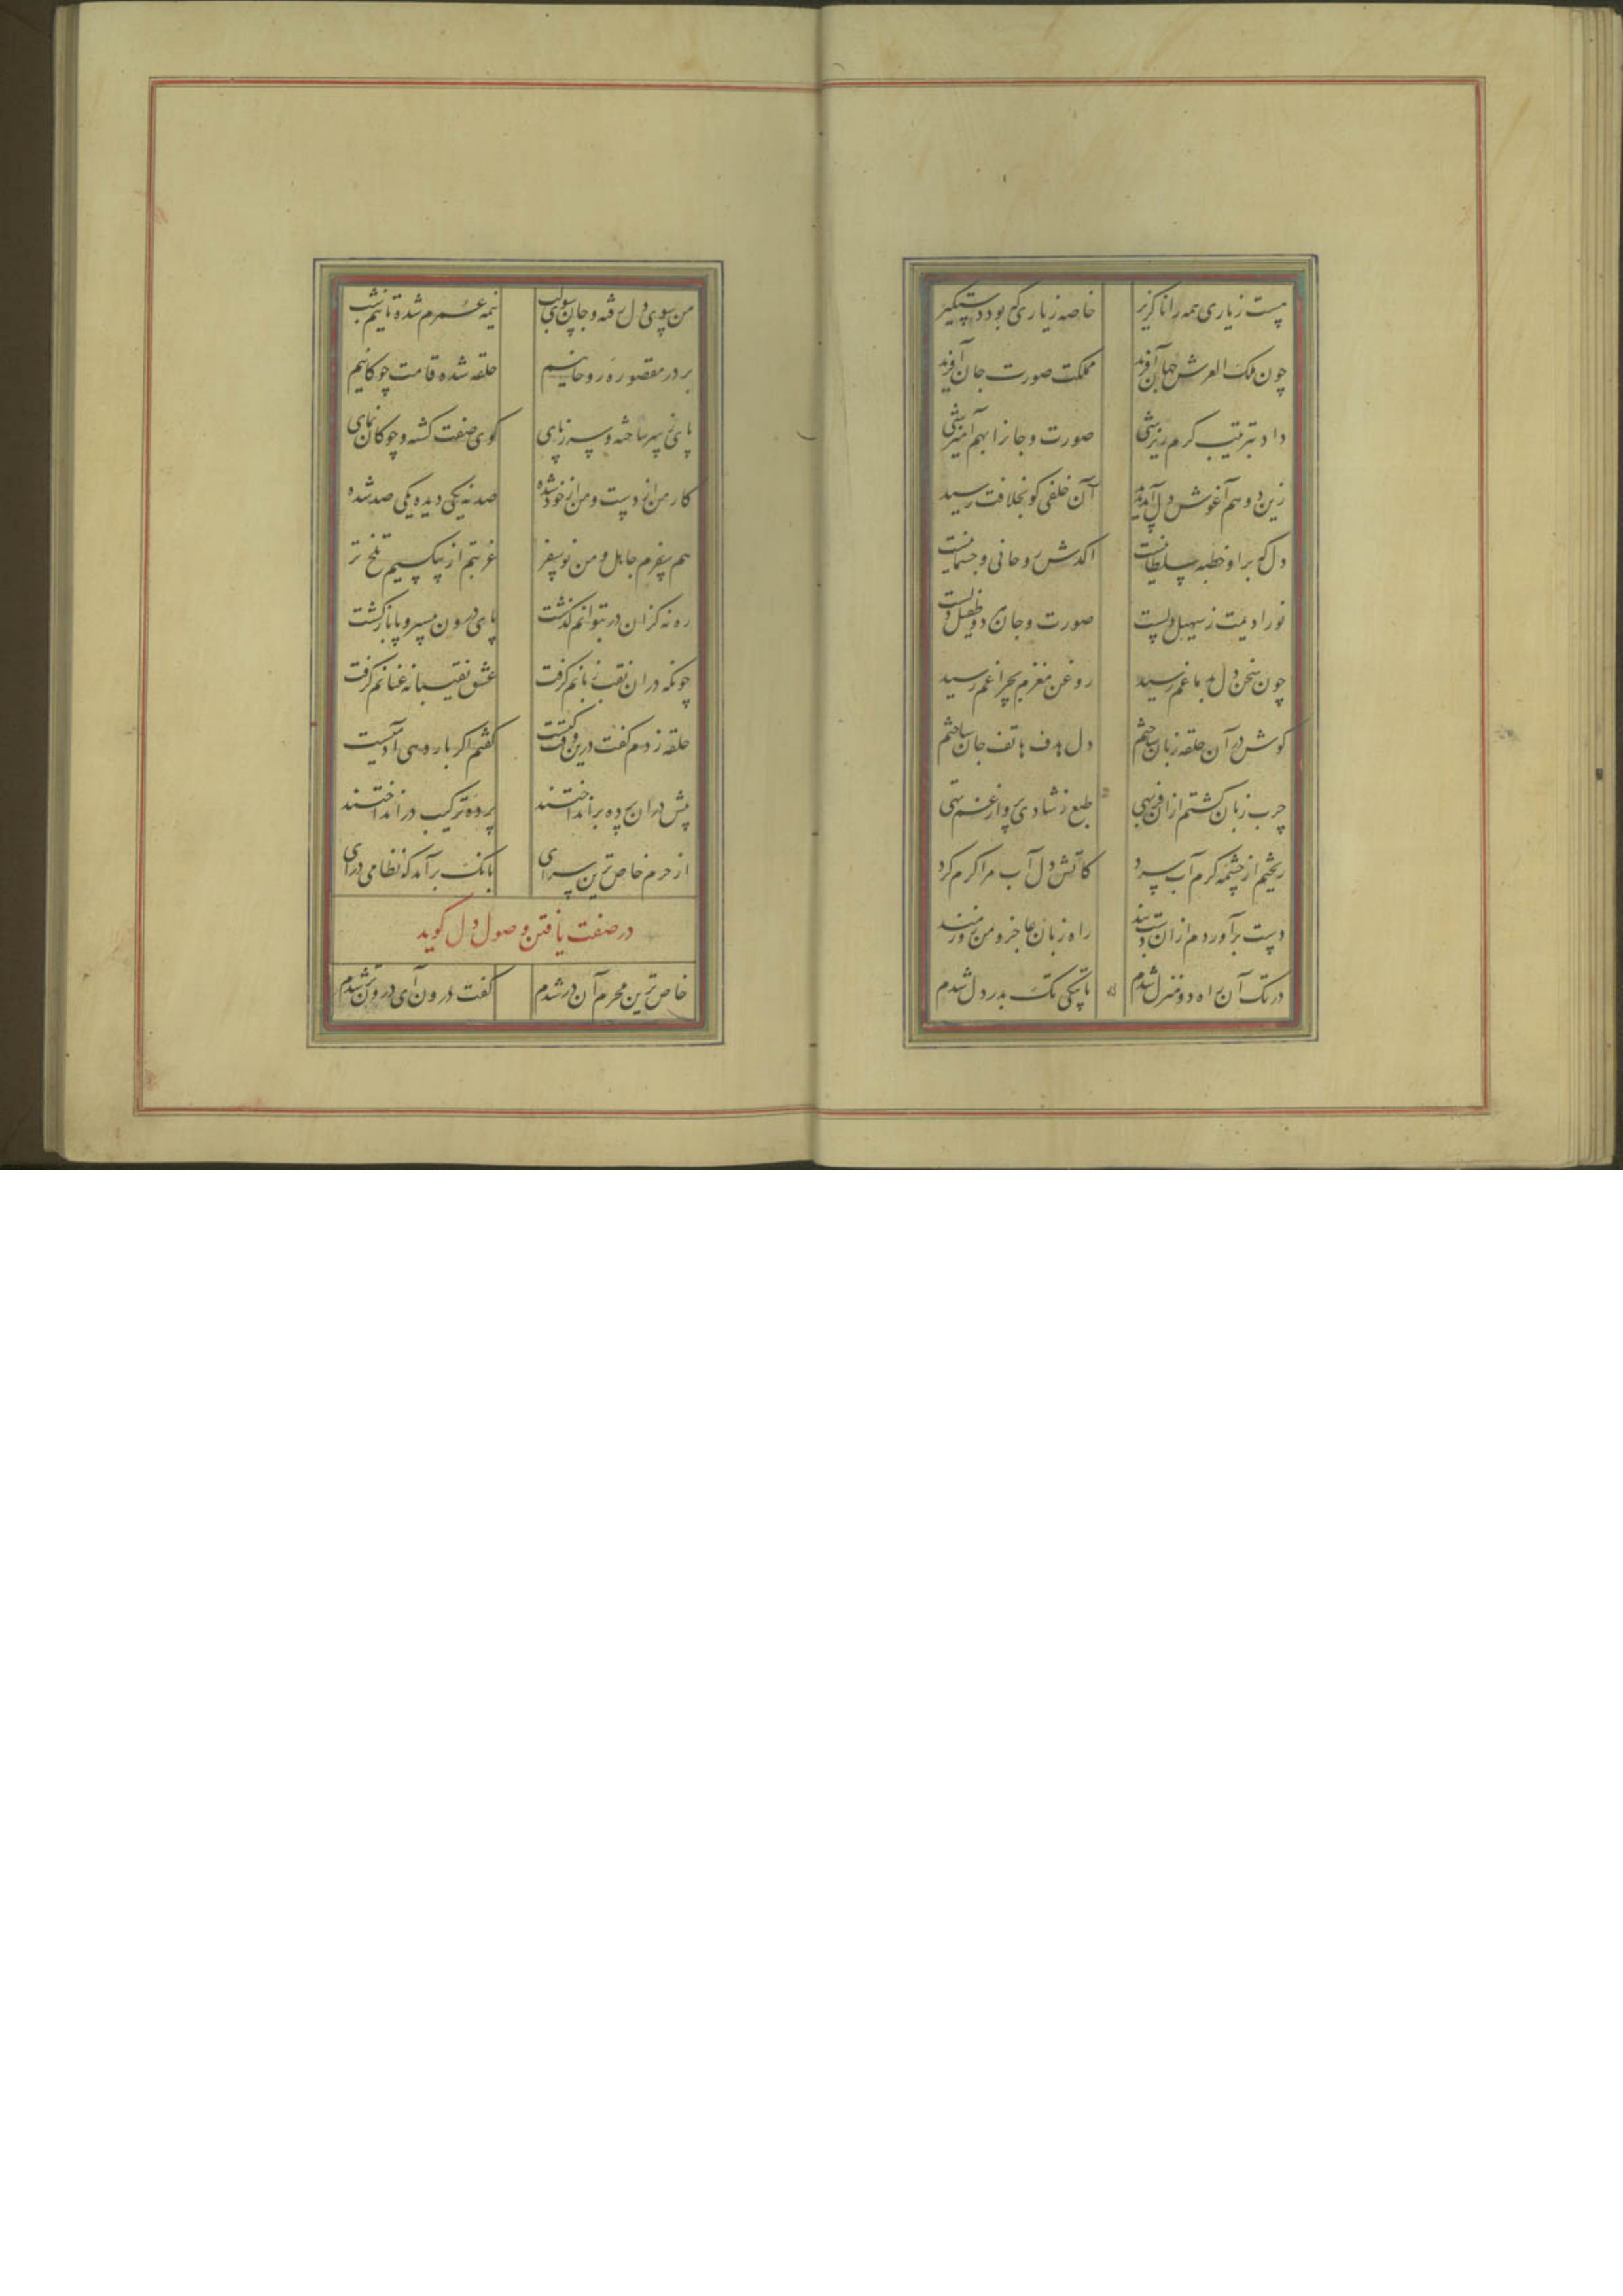 هست زیاری همه را ناگزیر خاصه زیاری که بود دستگیر
چون ملک العرش جهان آفرید مملکت صورت جان آفرید
داد بترتیب کرم ریزشی صورت و جانرا بهم آمیزشی
زین دو هم آغوش دل آمد پدید آن خلفی کو بخلافت رسید
دل که برو خطبه سلطانیست اکدش روحانی و جسمانیست
نور ادیمت ز سهیل دلست صورت و جان هر دو طفیل دلست
چون سخن دل بدماغم رسید روغن مغزم بچراغم رسید
گوش در آن حلقه زبان ساختم دل هدف هاتف جان ساختم
چرب زبان گشتم ازان فربهی طبع ز شادی پر و از غم تهی
ریختم از چشمه گرم آب سرد کاتش دل آب مرا گرم کرد
دست برآوردم ازان دست بند راه زنان عاجز و من زورمند
در تک آن راه دو منزل شدم تا بیکی تک بدر دل شدم
من سوی دل رفته و جان سوی لب نیمه عمرم شده تا نیم شب
بر در مقصوره روحانیم حلقه شده قامت چوگانیم
پای ز سر ساخته و سر ز پای گوی صفت گشته و چوگان نمای
کار من از دست و من از خود شده صد ز یکی دیده یکی صد شده
هم سفرم جاهل و من نو سفر غربتم از بیکسیم تلخ تر
ره نه کزان در بتوانم گذشت پای درون نی و سر باز گشت
چونکه در ان نقب زبانم گرفت عشق نقیبانه عنانم گرفت
حلقه زدم گفت درین وقت کیست گفتم اگر بار دهی آدمیست
پیش دران پرده برانداختند پرده ترکیب درانداختند
از حرم خاص ترین سرای بانگ برآمد که نظامی درآی
در صفت یافتن وصول دل گوید
خاص ترین محرم آن در شدم گفت درون آی درون تر شدم